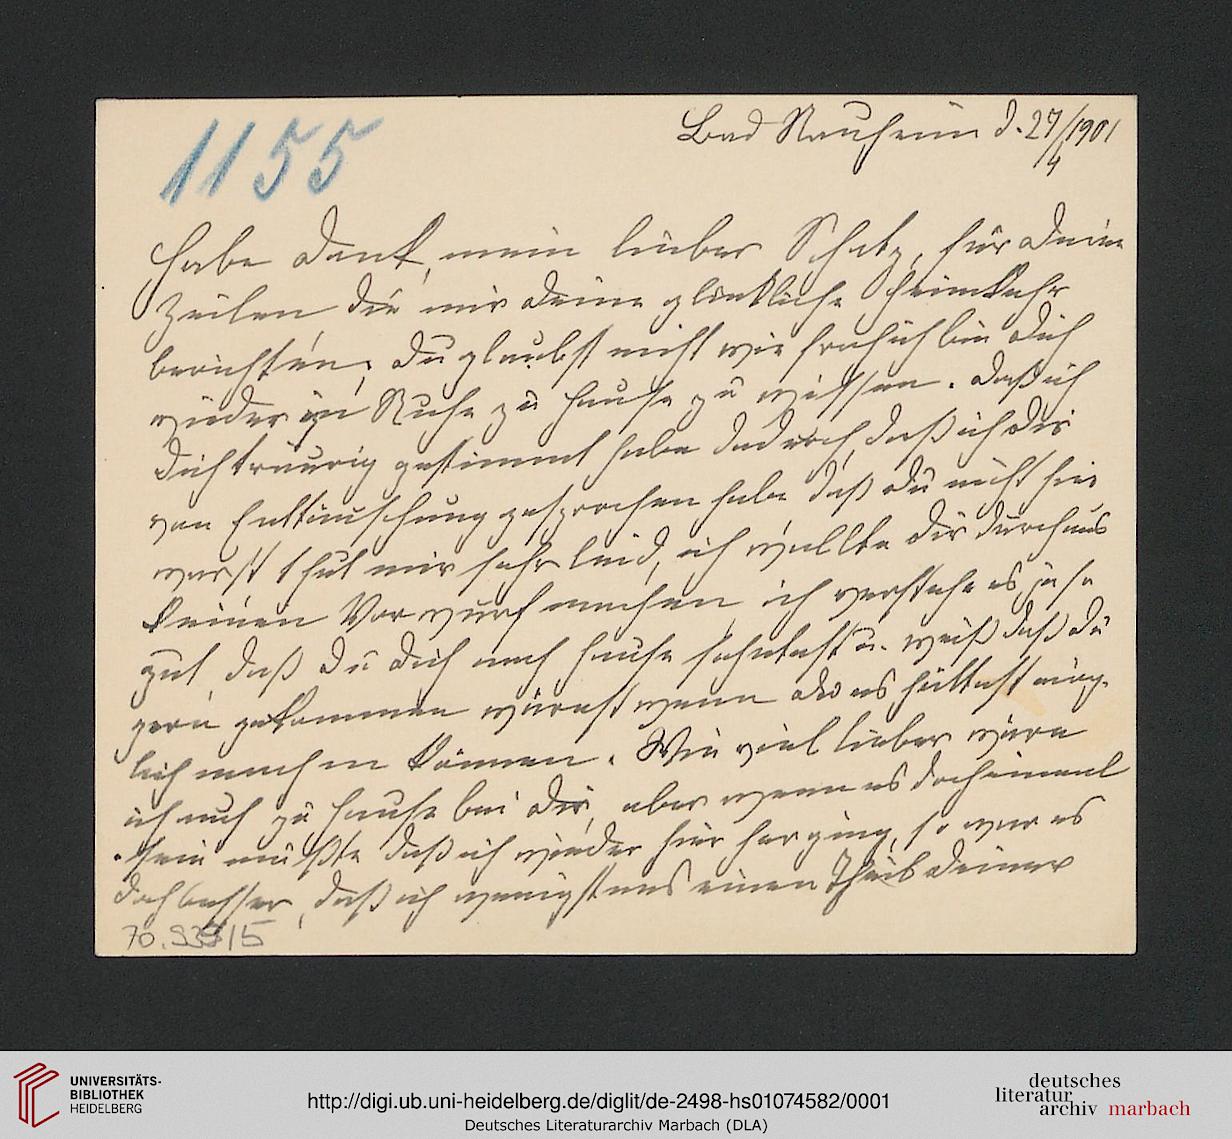 1155
Bad Nauheim d. 27/4 1901
Habe Dank, mein lieber Schatz, für Deine
Zeilen die mir Deine glückliche Heimkehr
berichten; Du glaubst nicht wie froh ich bin Dich
wieder in Ruhe zu Hause zu wissen. Daß ich
Dich traurig gestimmt habe dadurch, daß ich Dir
von Enttäuschung gesprochen habe daß Du nicht hier
warst thut mir sehr leid, ich wollte Dir durchaus
keinen Vorwurf machen, ich verstehe es ja so
gut, daß Du Dich nach Hause sehntest u. weiß daß Du
gern gekommen wärest wenn Du es hättest mög-
lich machen können. Wie viel lieber wäre
ich auch zu Hause bei Dir, aber wenn es doch einmal
sein mußte daß ich wieder hier her ging, so war es
doch besser, daß ich wenigstens einen Theil Deiner
70.939/5
UNIVERSITÄTS-
BIBLIOTHEK
HEIDELBERG
http://digi.ub.uni-heidelberg.de/diglit/de-2498-hs01074582/0001
Deutsches Literaturarchiv Marbach (DLA)
deutsches
literatur
archiv marbach